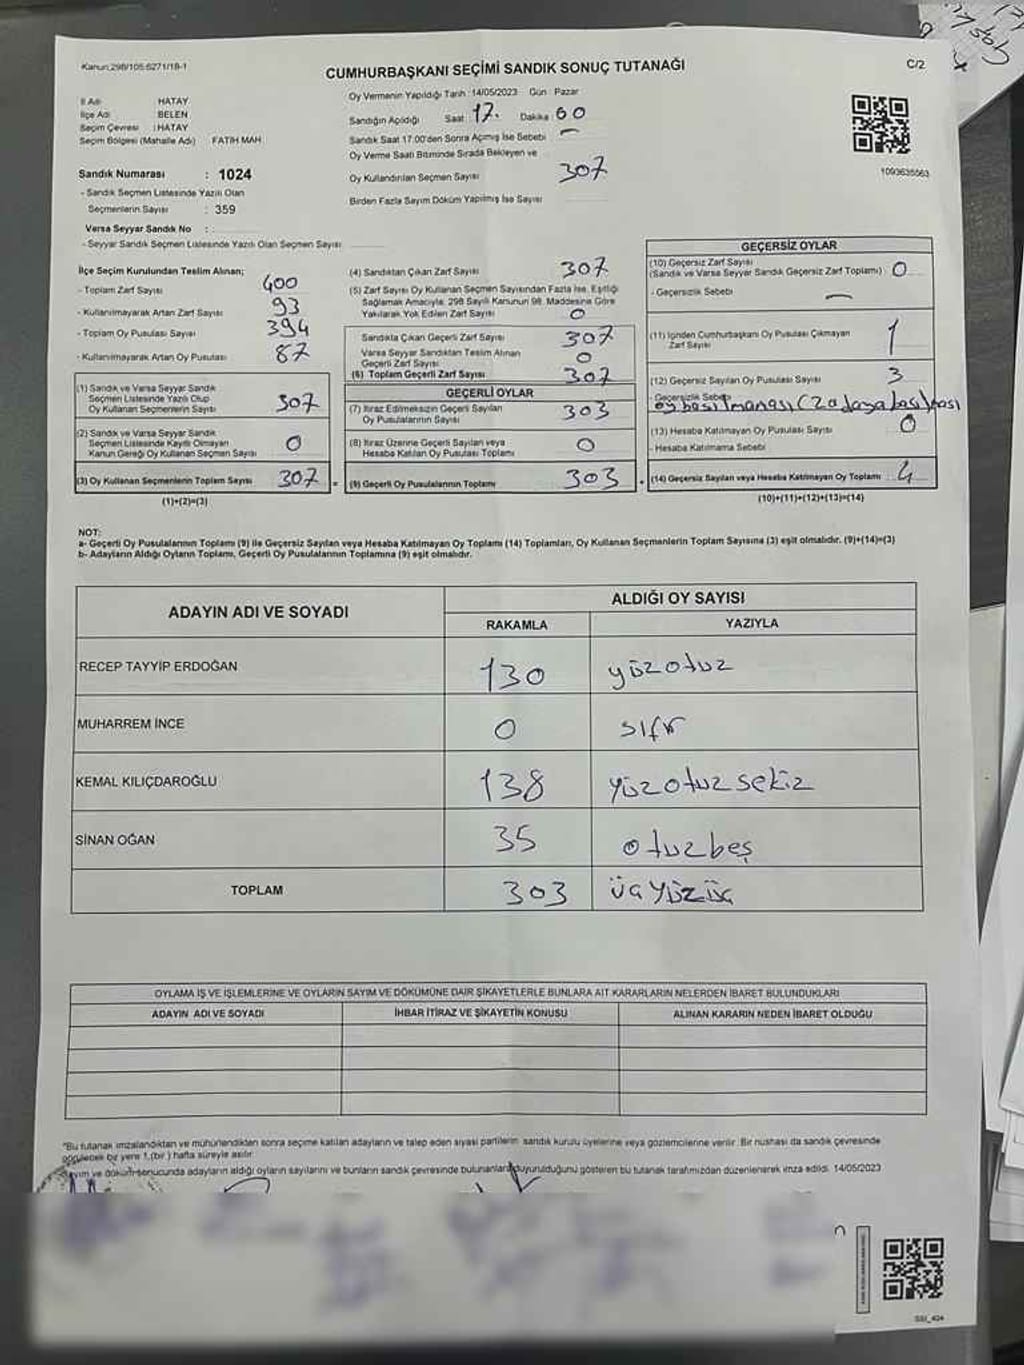 Kanun:298/105-6271/18-1
CUMHURBAŞKANI SEÇİMİ SANDIK SONUÇ TUTANAĞI
C/2
İl Adı HATAY
İlçe Adı BELEN
Seçim Çevresi : HATAY
Seçim Bölgesi (Mahalle Adı) FATİH MAH
Sandık Numarası : 1024
- Sandık Seçmen Listesinde Yazılı Olan
Seçmenlerin Sayısı : 359
Varsa Seyyar Sandık No :
- Seyyar Sandık Seçmen Listesinde Yazılı Olan Seçmen Sayısı
Oy Vermenin Yapıldığı Tarih : 14/05/2023 Gün : Pazar
Sandığın Açıldığı Saat 17. Dakika 00
Sandık Saat 17:00'den Sonra Açılmış İse Sebebi —
Oy Verme Saati Bitiminde Sırada Bekleyen ve
Oy Kullandırılan Seçmen Sayısı 307
Birden Fazla Sayım Döküm Yapılmış İse Sayısı
1093635563
İlçe Seçim Kurulundan Teslim Alınan;
- Toplam Zarf Sayısı 400
- Kullanılmayarak Artan Zarf Sayısı 93
- Toplam Oy Pusulası Sayısı 394
- Kullanılmayarak Artan Oy Pusulası 87
(1) Sandık ve Varsa Seyyar Sandık
Seçmen Listesinde Yazılı Olup
Oy Kullanan Seçmenlerin Sayısı 307
(2) Sandık ve Varsa Seyyar Sandık
Seçmen Listesinde Kayıtlı Olmayan
Kanun Gereği Oy Kullanan Seçmen Sayısı 0
(3) Oy Kullanan Seçmenlerin Toplam Sayısı 307 =
(1)+(2)=(3)
(4) Sandıktan Çıkan Zarf Sayısı 307
(5) Zarf Sayısı Oy Kullanan Seçmen Sayısından Fazla İse, Eşitliği
Sağlamak Amacıyla, 298 Sayılı Kanunun 98. Maddesine Göre
Yakılarak Yok Edilen Zarf Sayısı 0
Sandıkta Çıkan Geçerli Zarf Sayısı 307
Varsa Seyyar Sandıktan Teslim Alınan
Geçerli Zarf Sayısı 0
(6) Toplam Geçerli Zarf Sayısı 307
GEÇERLİ OYLAR
(7) İtiraz Edilmeksizin Geçerli Sayılan
Oy Pusulalarının Sayısı 303
(8) İtiraz Üzerine Geçerli Sayılan veya
Hesaba Katılan Oy Pusulası Toplamı 0
(9) Geçerli Oy Pusulalarının Toplamı 303 +
GEÇERSİZ OYLAR
(10) Geçersiz Zarf Sayısı
(Sandık ve Varsa Seyyar Sandık Geçersiz Zarf Toplamı) 0
- Geçersizlik Sebebi —
(11) İçinden Cumhurbaşkanı Oy Pusulası Çıkmayan
Zarf Sayısı 1
(12) Geçersiz Sayılan Oy Pusulası Sayısı 3
- Geçersizlik Sebebi
oy basılmaması (2 adaya basılması
(13) Hesaba Katılmayan Oy Pusulası Sayısı 0
- Hesaba Katılmama Sebebi
(14) Geçersiz Sayılan veya Hesaba Katılmayan Oy Toplamı 4
(10)+(11)+(12)+(13)=(14)
NOT:
a- Geçerli Oy Pusulalarının Toplamı (9) ile Geçersiz Sayılan veya Hesaba Katılmayan Oy Toplamı (14) Toplamları, Oy Kullanan Seçmenlerin Toplam Sayısına (3) eşit olmalıdır. (9)+(14)=(3)
b- Adayların Aldığı Oyların Toplamı, Geçerli Oy Pusulalarının Toplamına (9) eşit olmalıdır.
ADAYIN ADI VE SOYADI ALDIĞI OY SAYISI
RAKAMLA YAZIYLA
RECEP TAYYİP ERDOĞAN 130 yüzotuz
MUHARREM İNCE 0 sıfır
KEMAL KILIÇDAROĞLU 138 yüzotuzsekiz
SİNAN OĞAN 35 otuzbeş
TOPLAM 303 üçyüzüç
OYLAMA İŞ VE İŞLEMLERİNE VE OYLARIN SAYIM VE DÖKÜMÜNE DAİR ŞİKAYETLERLE BUNLARA AİT KARARLARIN NELERDEN İBARET BULUNDUKLARI
ADAYIN ADI VE SOYADI İHBAR İTİRAZ VE ŞİKAYETİN KONUSU ALINAN KARARIN NEDEN İBARET OLDUĞU
"Bu tutanak imzalandıktan ve mühürlendikten sonra seçime katılan adayların ve talep eden siyasi partilerin sandık kurulu üyelerine veya gözlemcilerine verilir. Bir nüshası da sandık çevresinde
görülecek bir yere 1 (bir) hafta süreyle asılır.
Sayım ve döküm sonucunda adayların aldığı oyların sayılarını ve bunların sandık çevresinde bulunanlara duyurulduğunu gösteren bu tutanak tarafımızdan düzenlenerek imza edildi. 14/05/2023